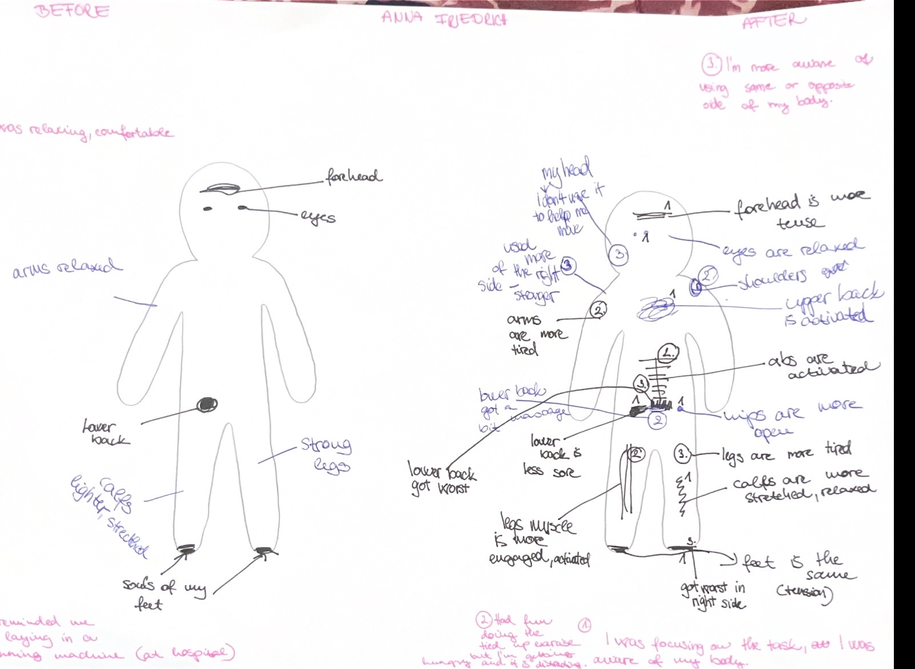 BEFORE
ANNA FRIEDRICH
AFTER
③ I'm more aware of
using same or opposite
side of my body.
was relaxing, comfortable
forehead
eyes
arms relaxed
lower
back
strong
legs
calfs
lighter, streched
souls of my
feet
reminded me
laying in a
machine (at hospital)
my head
I don't use it
to help me
move
③
used
more
of the right ③
side -
stronger
② 
arms
are more
tired
1
forehead is more
tense
1
eyes are relaxed
②
shoulders
1
upper back
is activated
1.
abs are
activated
③
lower back
got a
bit massage
1
1
②
hips are more
open
lower
back is
less sore
lower back
got worst
②
③
legs are more tired
1
calfs are more
stretched, relaxed
legs muscle
is more
engaged, activated
3.
1
feet is the
same
(tension)
got worst in
right side
② Had fun
doing the
tied up exercise
but I'm getting
hungry and it's
①
I was focusing on the task, I was
aware of my body.